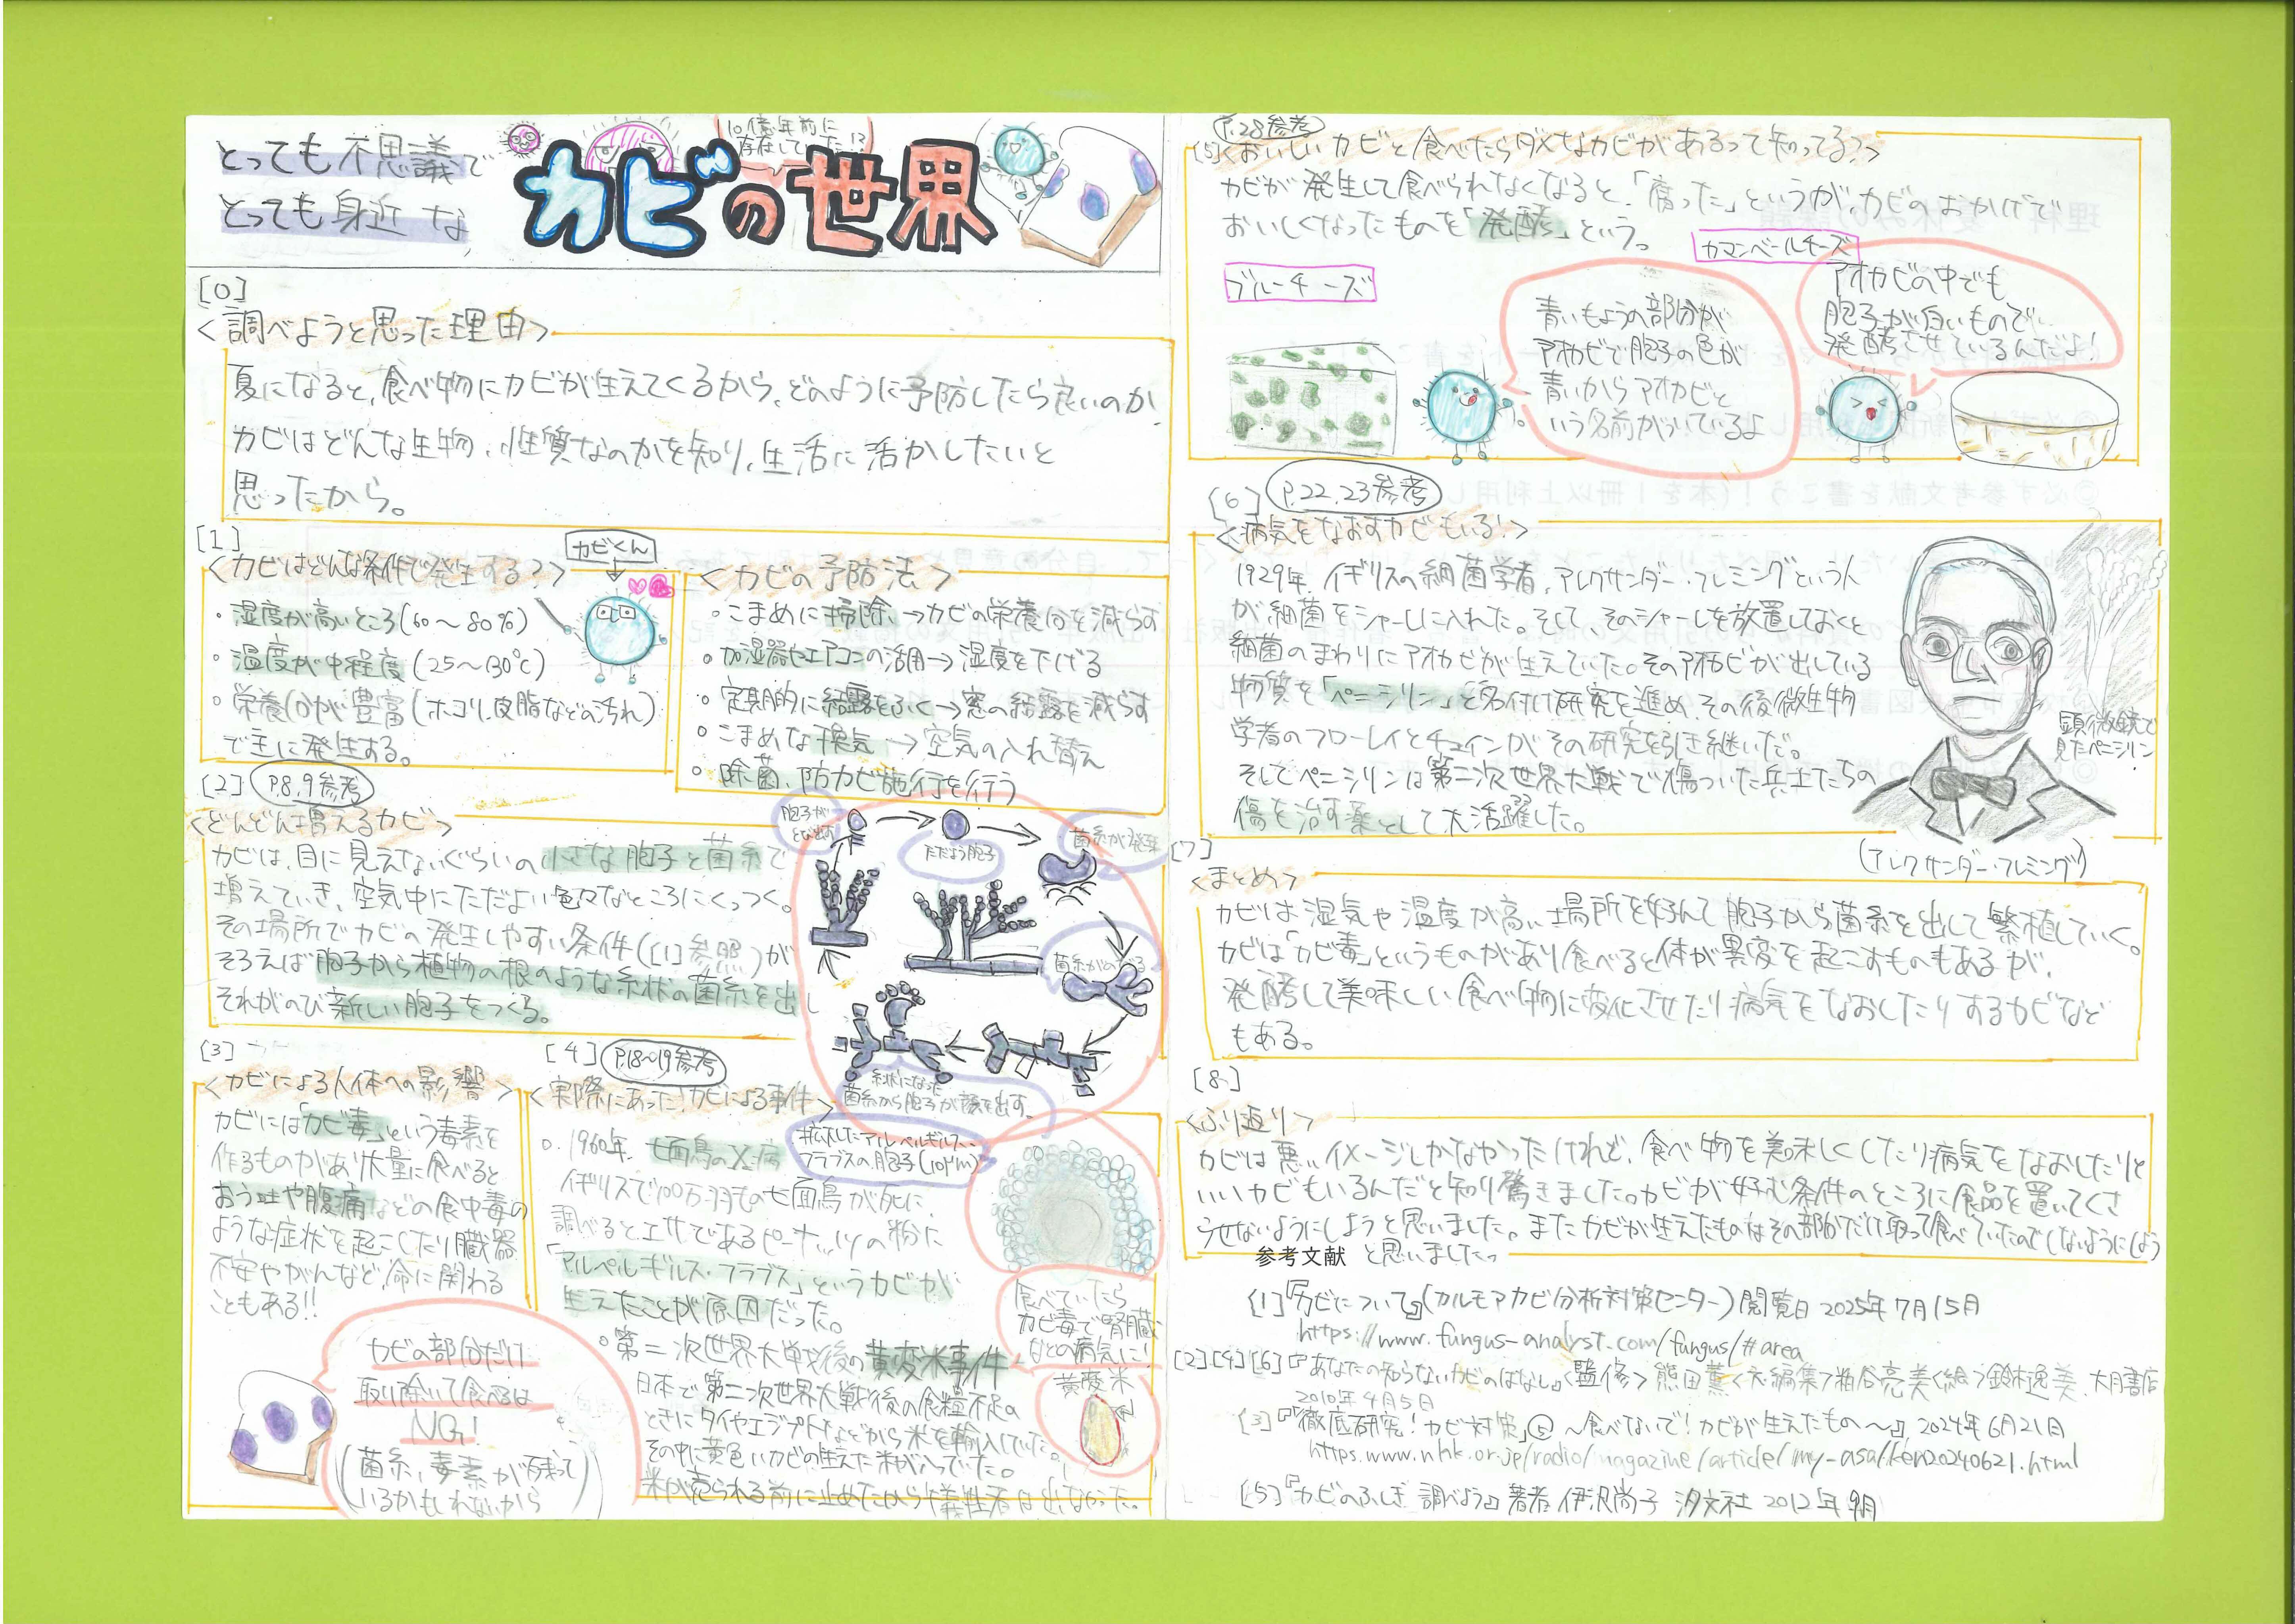 とっても不思議で
とっても身近な
10億年前に
存在していた!?
カビの世界
[0]
<調べようと思った理由>
夏になると、食べ物にカビが生えてくるから、どのように予防したら良いのか
カビはどんな生物、性質なのかを知り、生活に活かしたいと
思ったから。
[1]
<カビはどんな条件で発生する?>
・湿度が高いところ(60〜80%)
・温度が中程度(25〜30℃)
・栄養分が豊富(ホコリ、皮脂などの汚れ)
で主に発生する。
カビくん
<カビの予防法>
○こまめに掃除、→カビの栄養分を減らす
○加湿器やエアコンの活用→湿度を下げる
○定期的に結露をふく→窓の結露を減らす
○こまめな換気→空気の入れ替え
○除菌、防カビ施行を行う
[2] P.8,9参考
<どんどん増えるカビ>
カビは、目に見えないぐらいの小さな胞子と菌糸で
増えていき、空気中にただよい色々なところにくっつく。
その場所でカビの発生しやすい条件([1]参照)が
そろえば胞子から植物の根のような糸状の菌糸を出し
それがのび新しい胞子をつくる。
胞子が
とび出す
ただよう胞子
菌糸が発芽
菌糸がのびる
糸状になった
菌糸から胞子が顔を出す。
[3]
<カビによる人体への影響>
カビには「カビ毒」という毒素を
作るものがあり大量に食べると
おう吐や腹痛などの食中毒の
ような症状を起こしたり臓器
不安やがんなど、命に関わる
こともある!!
カビの部分だけ
取り除いて食べるは
NG!
(菌糸、毒素が残って
いるかもしれないから)
[4] P.18〜19参考
<実際にあった!カビによる事件>
○1960年、七面鳥のX病
イギリスで100万羽もの七面鳥が死に、
調べるとエサであるピーナッツの粉に
「アルペルギルス・フラブス」というカビが
生えたことが原因だった。
拡大したアルペルギルス・
フラブスの胞子(10μm)
食べていたら
カビ毒で腎臓
などの病気に!
○第二次世界大戦後の黄変米事件
日本で第二次世界大戦後の食糧不足の
ときにタイやエジプトなどから米を輸入していた。
その中に黄色いカビの生えた米が入っていた。
米が売られる前に止めたから犠牲者は出なかった。
黄変米
P.28参考
[5]<おいしいカビと食べたらダメなカビがあるって知ってる?>
カビが発生して食べられなくなると、「腐った」というが、カビのおかげで
おいしくなったものを「発酵」という。
ブルーチーズ
青いもようの部分が
アオカビで胞子の色が
青いからアオカビと
いう名前がついているよ
カマンベールチーズ
アオカビの中でも
胞子が白いもので
発酵させているんだよ!
[6] P.22,23参考
<病気をなおすカビもいる!>
1929年、イギリスの細菌学者、アレクサンダー・フレミングという人
が細菌をシャーレに入れた。そして、そのシャーレを放置しておくと
細菌のまわりにアオカビが生えていた。そのアオカビが出している
物質を「ペニシリン」と名付け研究を進め、その後微生物
学者のフローレイとチェインがその研究を引き継いだ。
そしてペニシリンは第二次世界大戦で傷ついた兵士たちの
傷を治す薬として大活躍した。
顕微鏡で
見たペニシリン
(アレクサンダー・フレミング)
[7]
<まとめ>
カビは湿気や温度が高い場所を好んで胞子から菌糸を出して繁殖していく。
カビは「カビ毒」というものがあり食べると体が異変を起こすものもあるが、
発酵して美味しい食べ物に変化させたり病気をなおしたりするカビなど
もある。
[8]
<ふり返り>
カビは悪いイメージしかなかったけれど、食べ物を美味しくしたり病気をなおしたりと
いいカビもいるんだと知り驚きました。カビが好む条件のところに食品を置いてくさ
らせないようにしようと思いました。またカビが生えたものはその部分だけ取って食べていたのでしないようにしよう
と思いました。
参考文献
[1]『カビについて』(カルモアカビ分析対策センター)閲覧日 2025年7月15日
https://www.fungus-analyst.com/fungus/#area
[2][4][6]『あなたの知らないカビのはなし』<監修>熊田薫<文・編集>粕谷亮美<絵>鈴木逸美、大月書店
2010年4月5日
[3]『「徹底研究!カビ対策」② 〜食べないで!カビが生えたもの〜』、2024年6月21日
https.www.nhk.or.jp/radio/magazine/article/my-asa/ken20240621.html
[5]『カビのふしぎ 調べよう』著者 伊沢尚子 汐文社 2012年9月